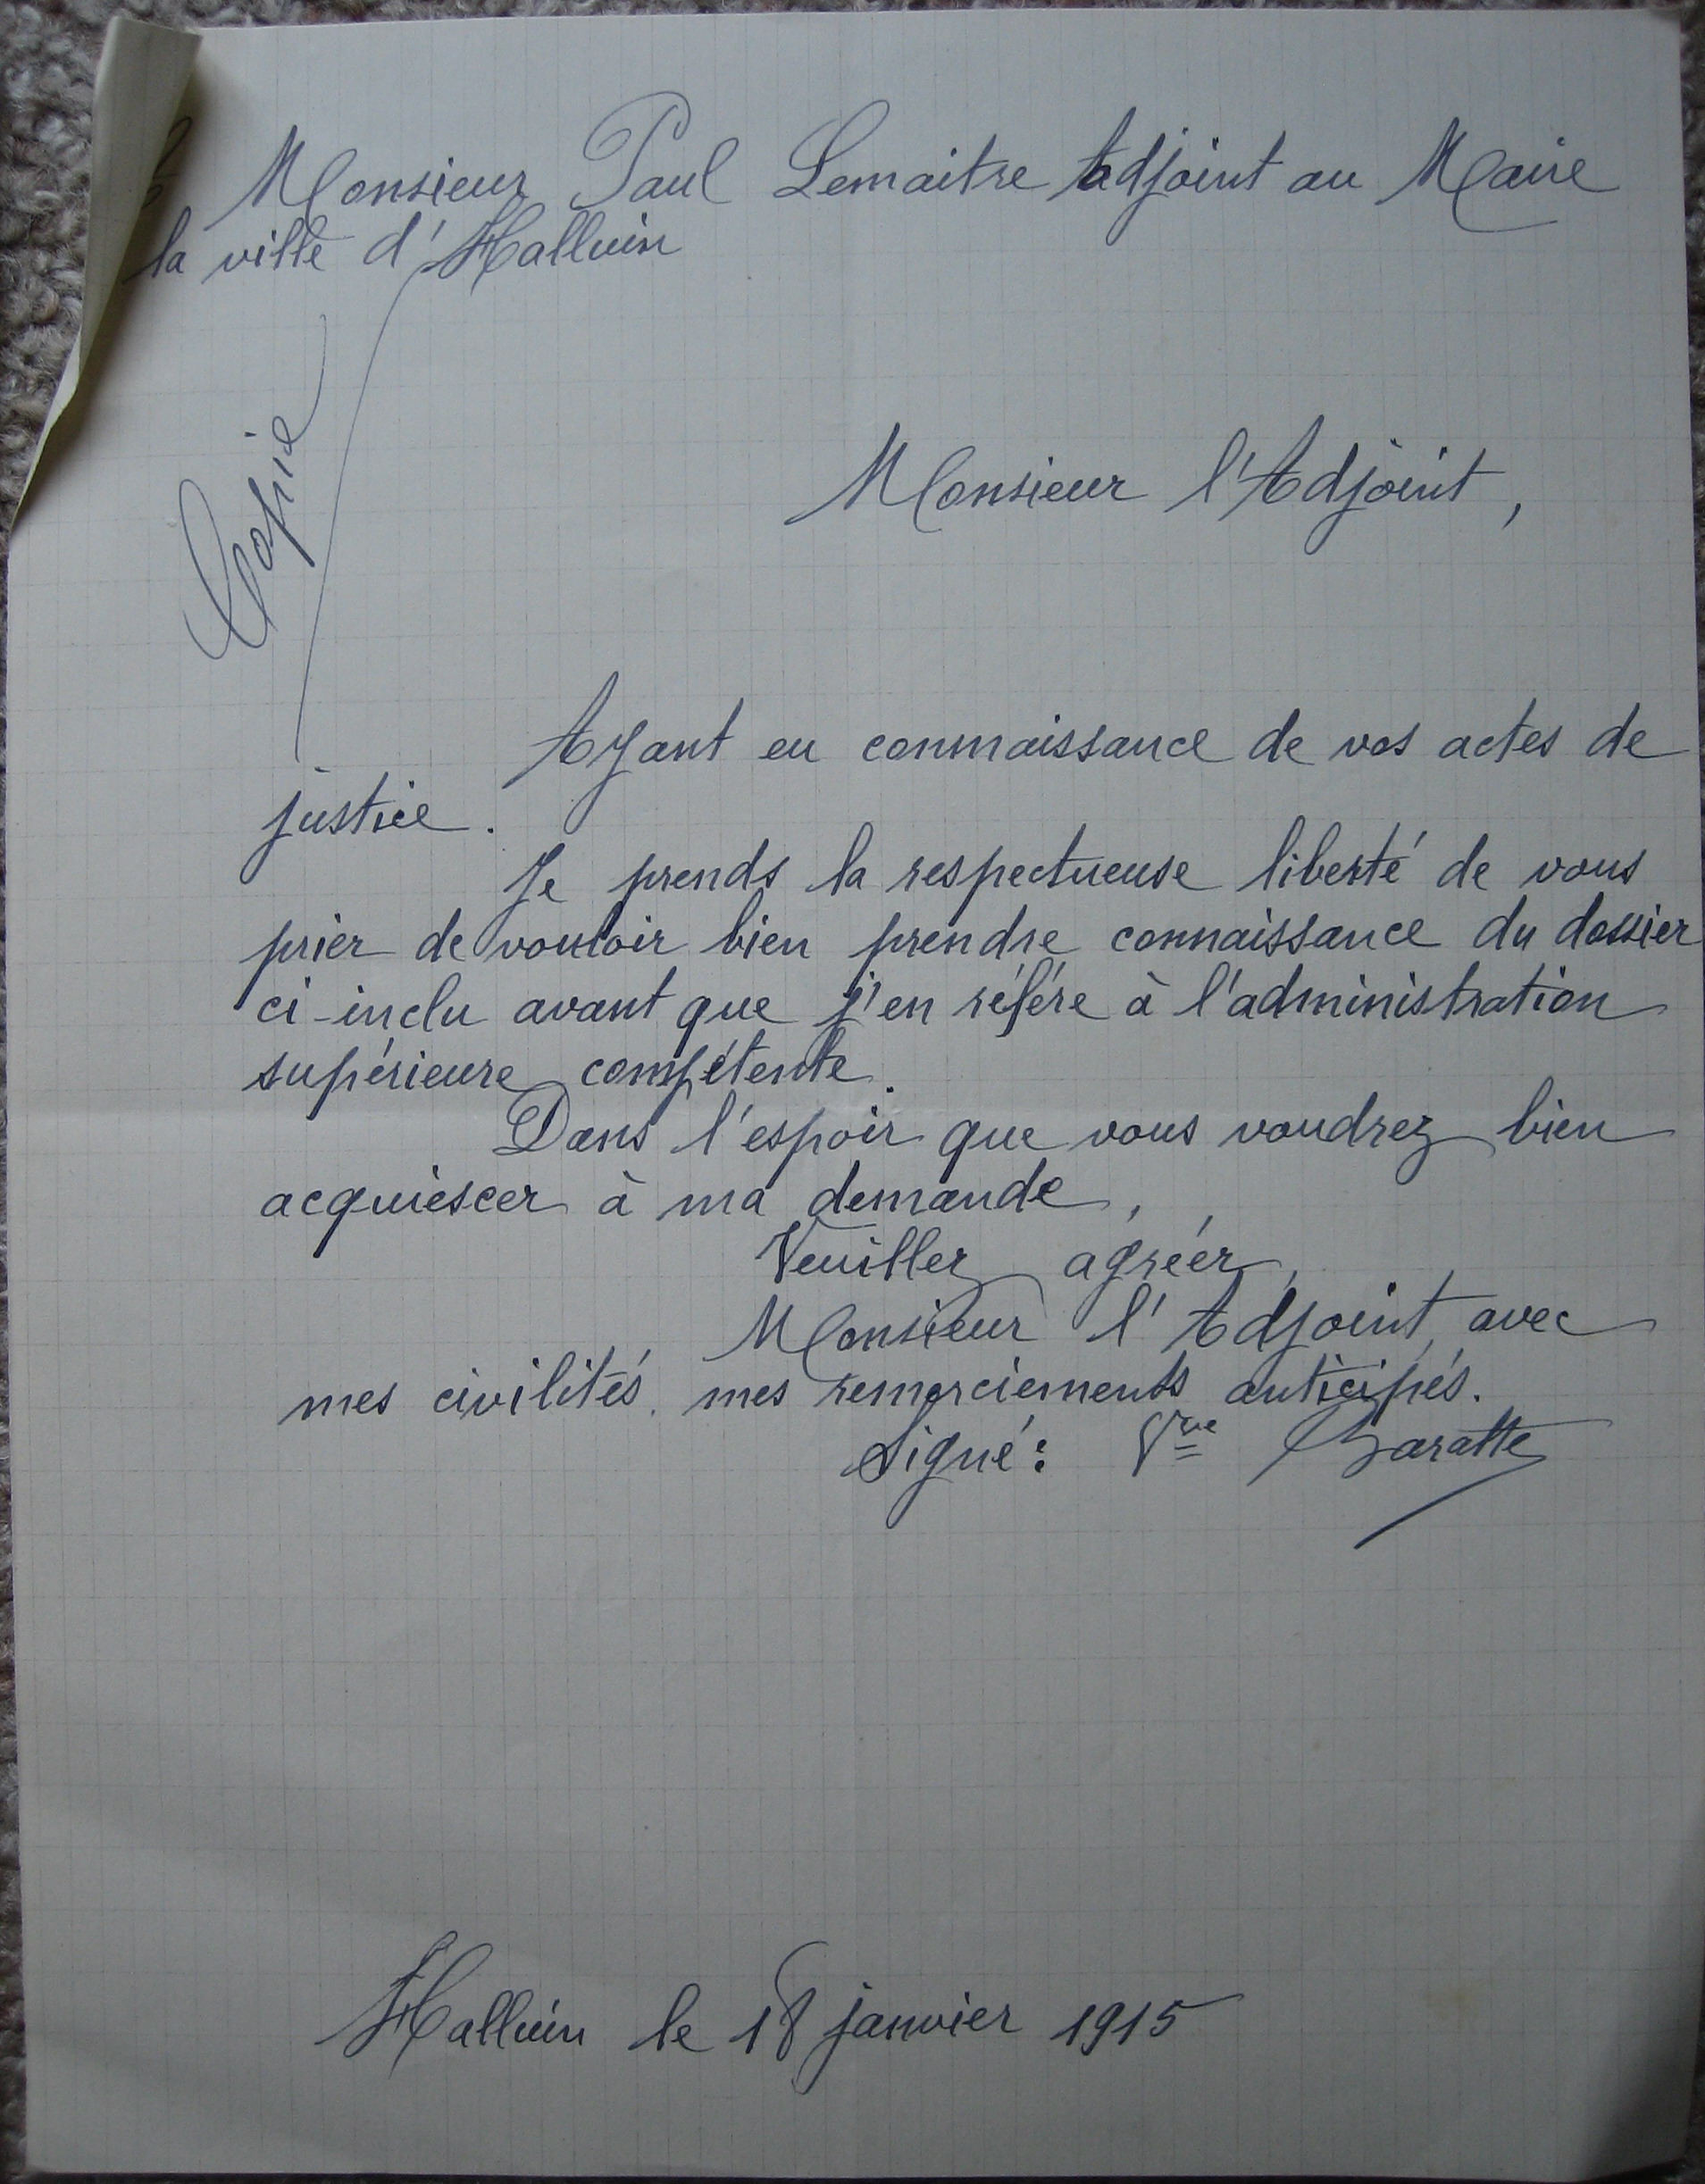 Monsieur Paul Lemaitre Adjoint au Maire
la ville d'Halluin
Copie
Monsieur l'Adjoint,
Ayant eu connaissance de vos actes de
justice.
Je prends la respectueuse liberté de vous
prier de vouloir bien prendre connaissance du dossier
ci-inclu avant que j'en réfère à l'administration
supérieure compétente.
Dans l'espoir que vous voudrez bien
acquiescer à ma demande,
Veuillez agréer,
Monsieur l'Adjoint, avec
mes civilités, mes remerciements anticipés.
Signé: Vve Baratte
Halluin le 18 janvier 1915